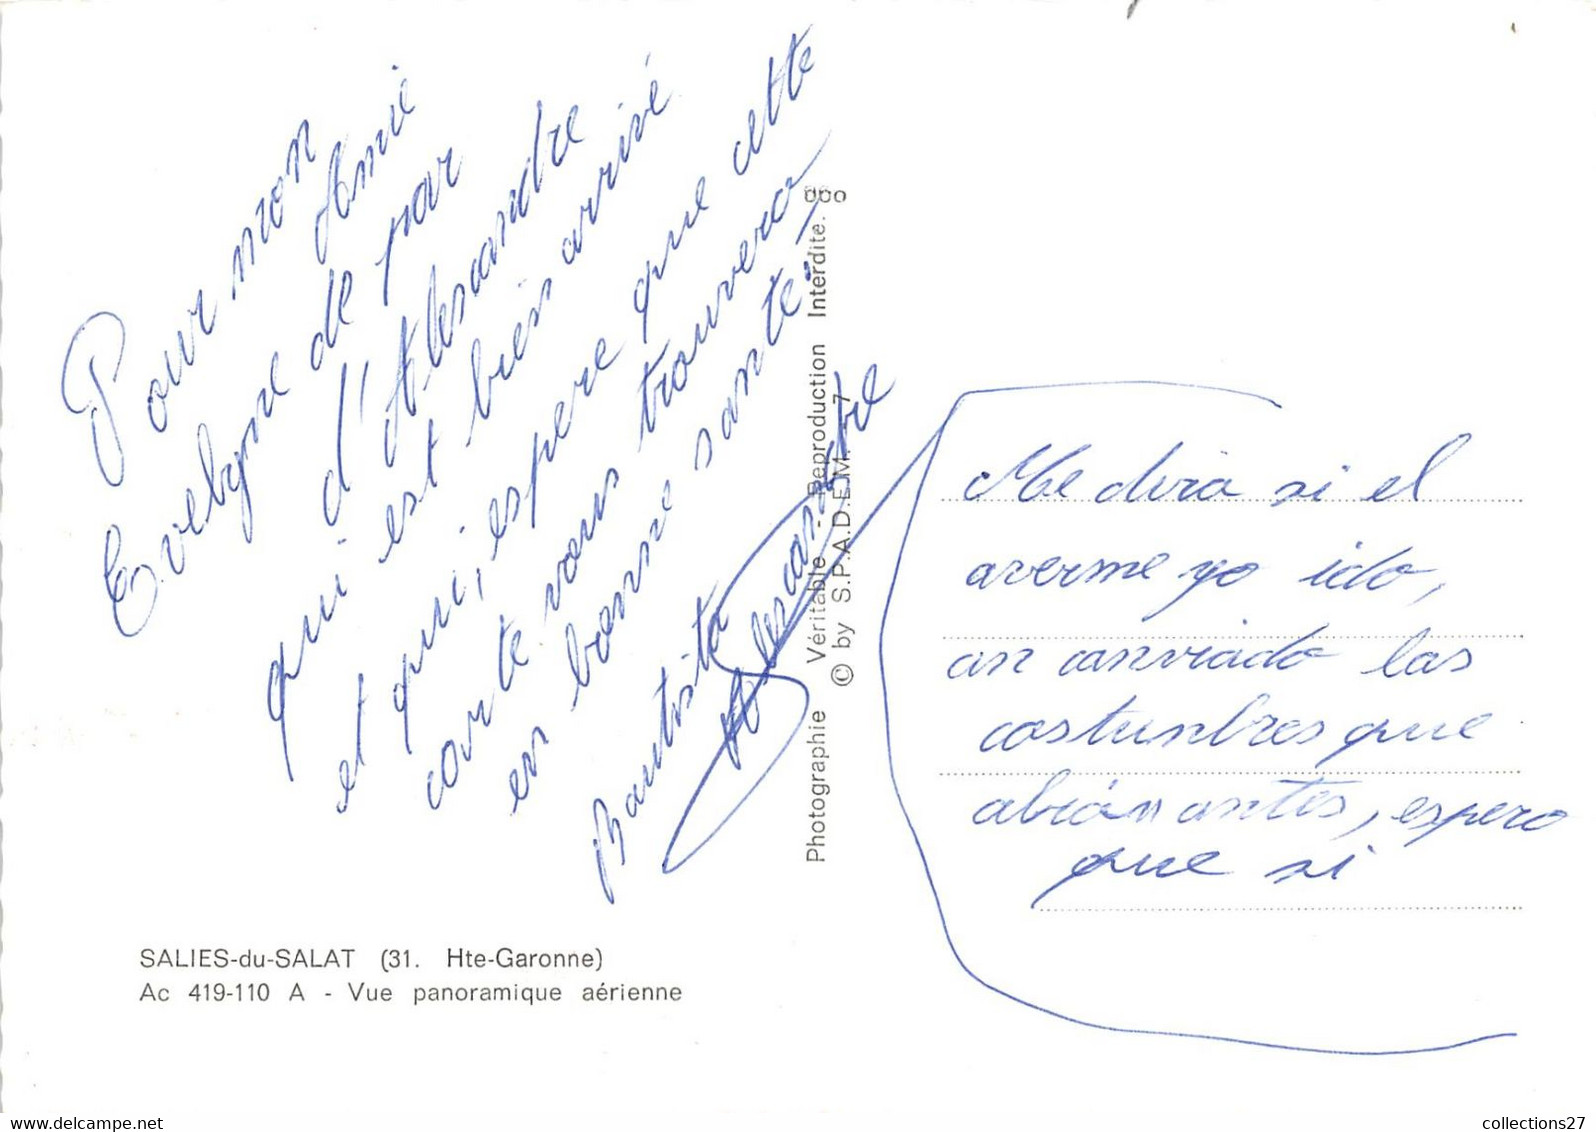 Pour mon
Amie
Evelyne de par
d'Alesandre
qui est bien arrivé
et qui, espere que cette
carte vous trouvera
en bonne santé
Bautista
Alesandre
Photographie Véritable - Reproduction Interdite.
© by S.P.A.D.E.M. 7
Me dira si el
averme yo ido,
an canviado las
costunbres que
abián antes, espero
que si
SALIES-du-SALAT (31. Hte-Garonne)
Ac 419-110 A - Vue panoramique aérienne
collections27